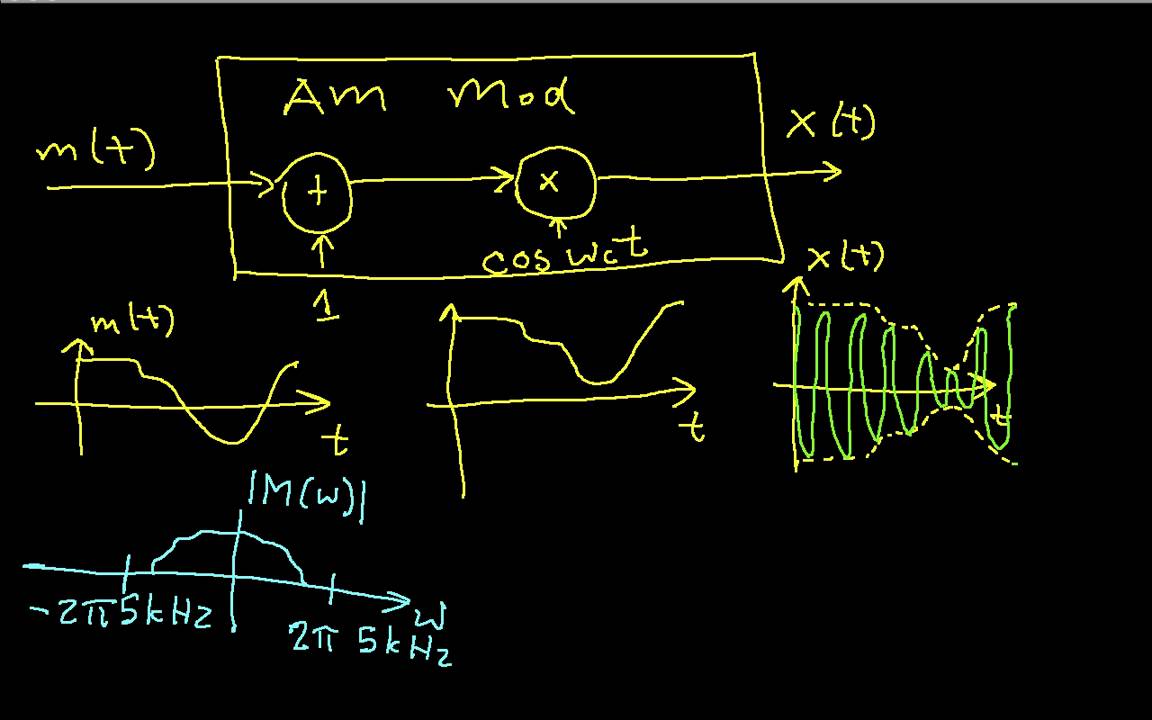 Am Mod
m(t)
x(t)
+
x
cos wct
1
x(t)
m(t)
t
t
t
|M(w)|
-2π5kHz
w
2π 5kHz